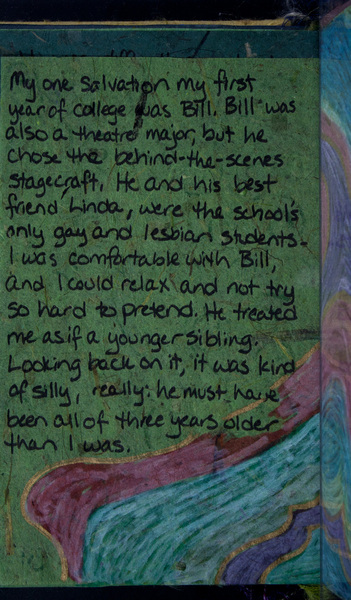 My one salvation my first
year of college was Bill. Bill was
also a theatre major, but he
chose the behind-the-scenes
stagecraft. He and his best
friend, Linda, were the school's
only gay and lesbian students.
I was comfortable with Bill,
and I could relax and not try
so hard to pretend. He treated
me as if a younger sibling.
Looking back on it, it was kind
of silly, really: he must have
been all of three years older
than I was.